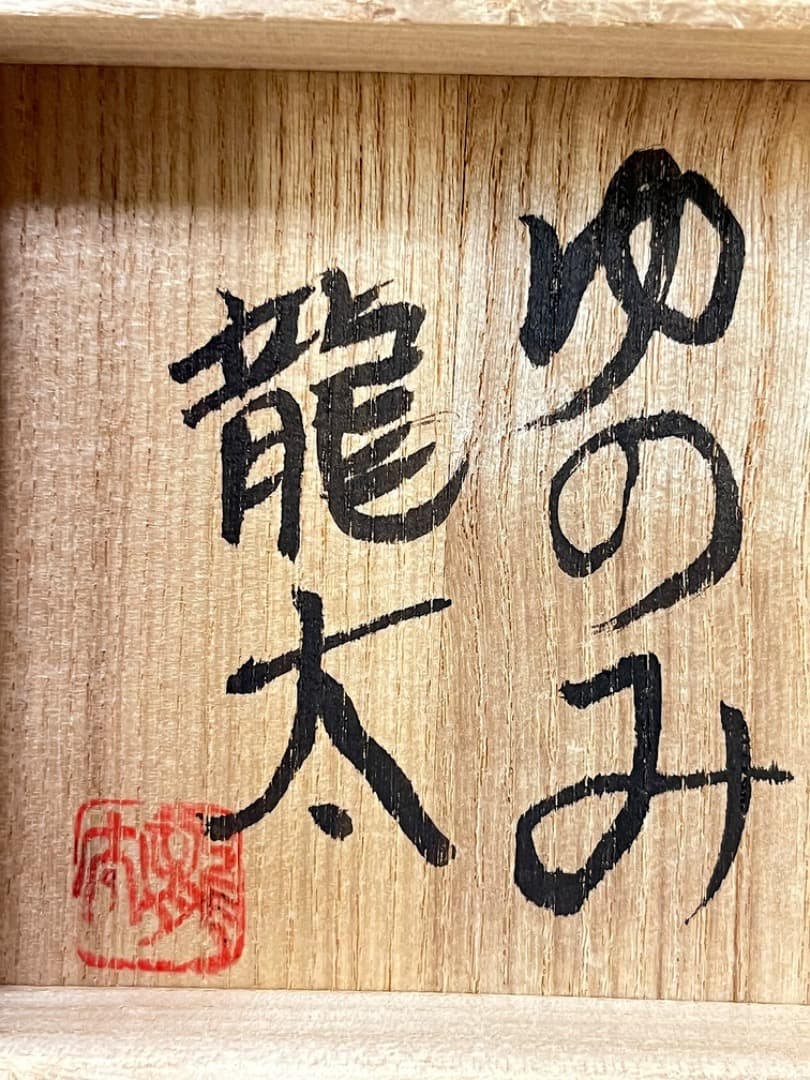 ゆのみ
龍太